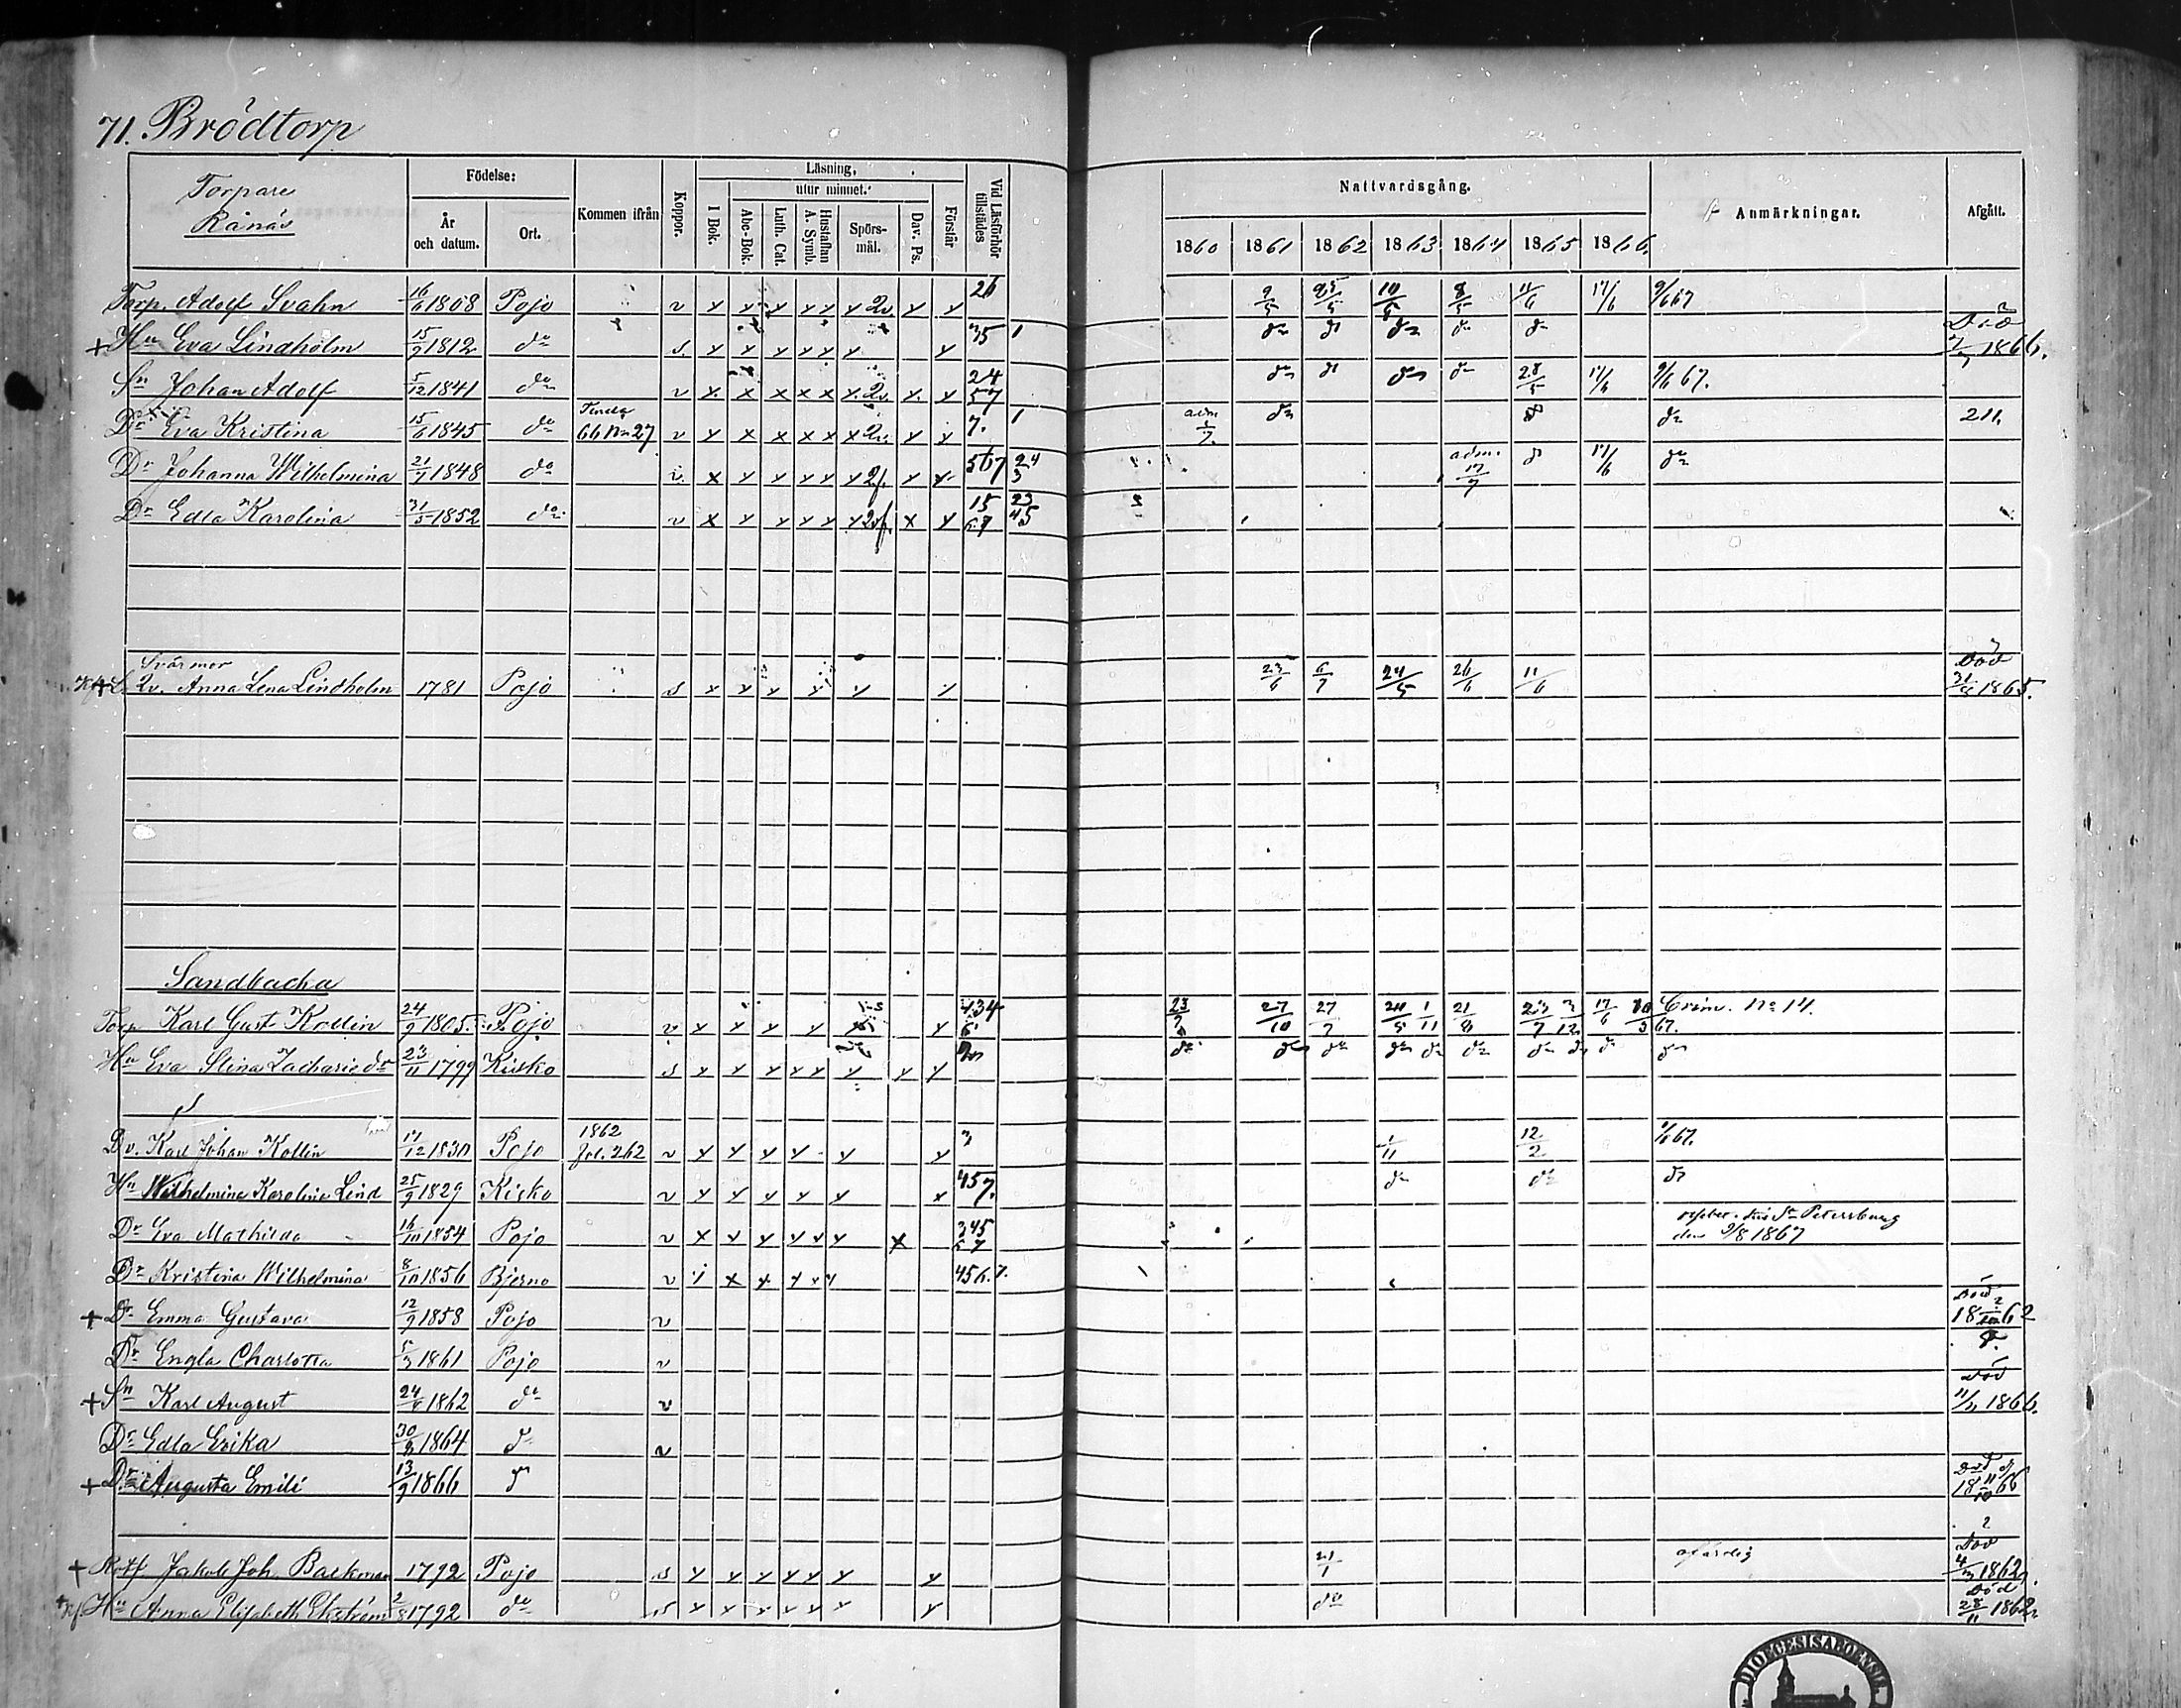 71. Brödtorp
Torpare
Rånäs
Födelse:
År och datum.
Ort.
Kommen ifrån
Koppor.
Läsning,
utur minnet.
I Bok.
Abc-Bok.
Luth. Cat.
Hustaflan A. Symb.
Spörsmål.
Dav. Ps.
Förstår
Vid Läsförhör tillstädes
Nattvardsgång.
1860 1861 1862 1863 1864 1865 1866.
Anmärkningar.
Afgått.
Torp. Adolf Svahn 16/6 1808 Pojo v 26 9/5 25/5 10/5 8/5 11/6 17/6 9/6 67
+ Hu Eva Lindholm 15/9 1812 do s. 35 1 do do do do do Död 1866.
Sn Johan Adolf 5/12 1841 do v 24 57 do do do do 28/5 17/6 9/6 67.
Dr Eva Kristina 15/6 1845 do 66 No 27 v 7. 1 adm do do do 211.
Dr Johanna Wilhelmina 21/7 1848 do v. 567 24 3 adm. 17/7 do 17/6 do
Dr Edla Karolina 31/5 1852 do v 15 67 23 45
Svärmor
Anna Lena Lindholm 1781 Pojo s 23/6 6/7 24/5 26/6 11/6 Död 31/8 1865.
Sandbacka
Torp Karl Gust Kollin 24/9 1805. Pojo v 434 6 23/9 27/10 27/7 20/5 1/11 21/8 23/7 3/12 17/6 10/3 67. Crim. No 14.
Hu Eva Stina Zachariedr 23/11 1799 Kisko s do do do do do do do do do
Dv. Karl Johan Kollin 17/12 1830 Pojo 1862 fol. 262 v 3 1/11 12/2 67.
Hu Wilhelmina Karolina Lind 25/9 1829 Kisko v 457. do do do
Dr Eva Mathilda 16/10 1854 Pojo v 345 67 till St Petersburg den 9/8 1867
Dr Kristina Wilhelmina 8/10 1856 Bjerno v 456.7.
+ Dr Emma Gustava 12/9 1858 Pojo v Död 1862
Dr Engla Charlotta 5/3 1861 Pojo v
+ Sn Karl August 24/8 1862 do v Död 1866.
Dr Edla Erika 30/8 1864 do v
+ Dr Augusta Emili 13/9 1866 do Död 18 11/10 66
+ Rotf Jakob Joh. Backman 1792 Pojo s 21/1 ofärdig Död 4/3 1862.
Hu Anna Elisabeth Ekström 2/8 1792 do s do Död 28/11 1862
DIOECESIS ABOENSIS